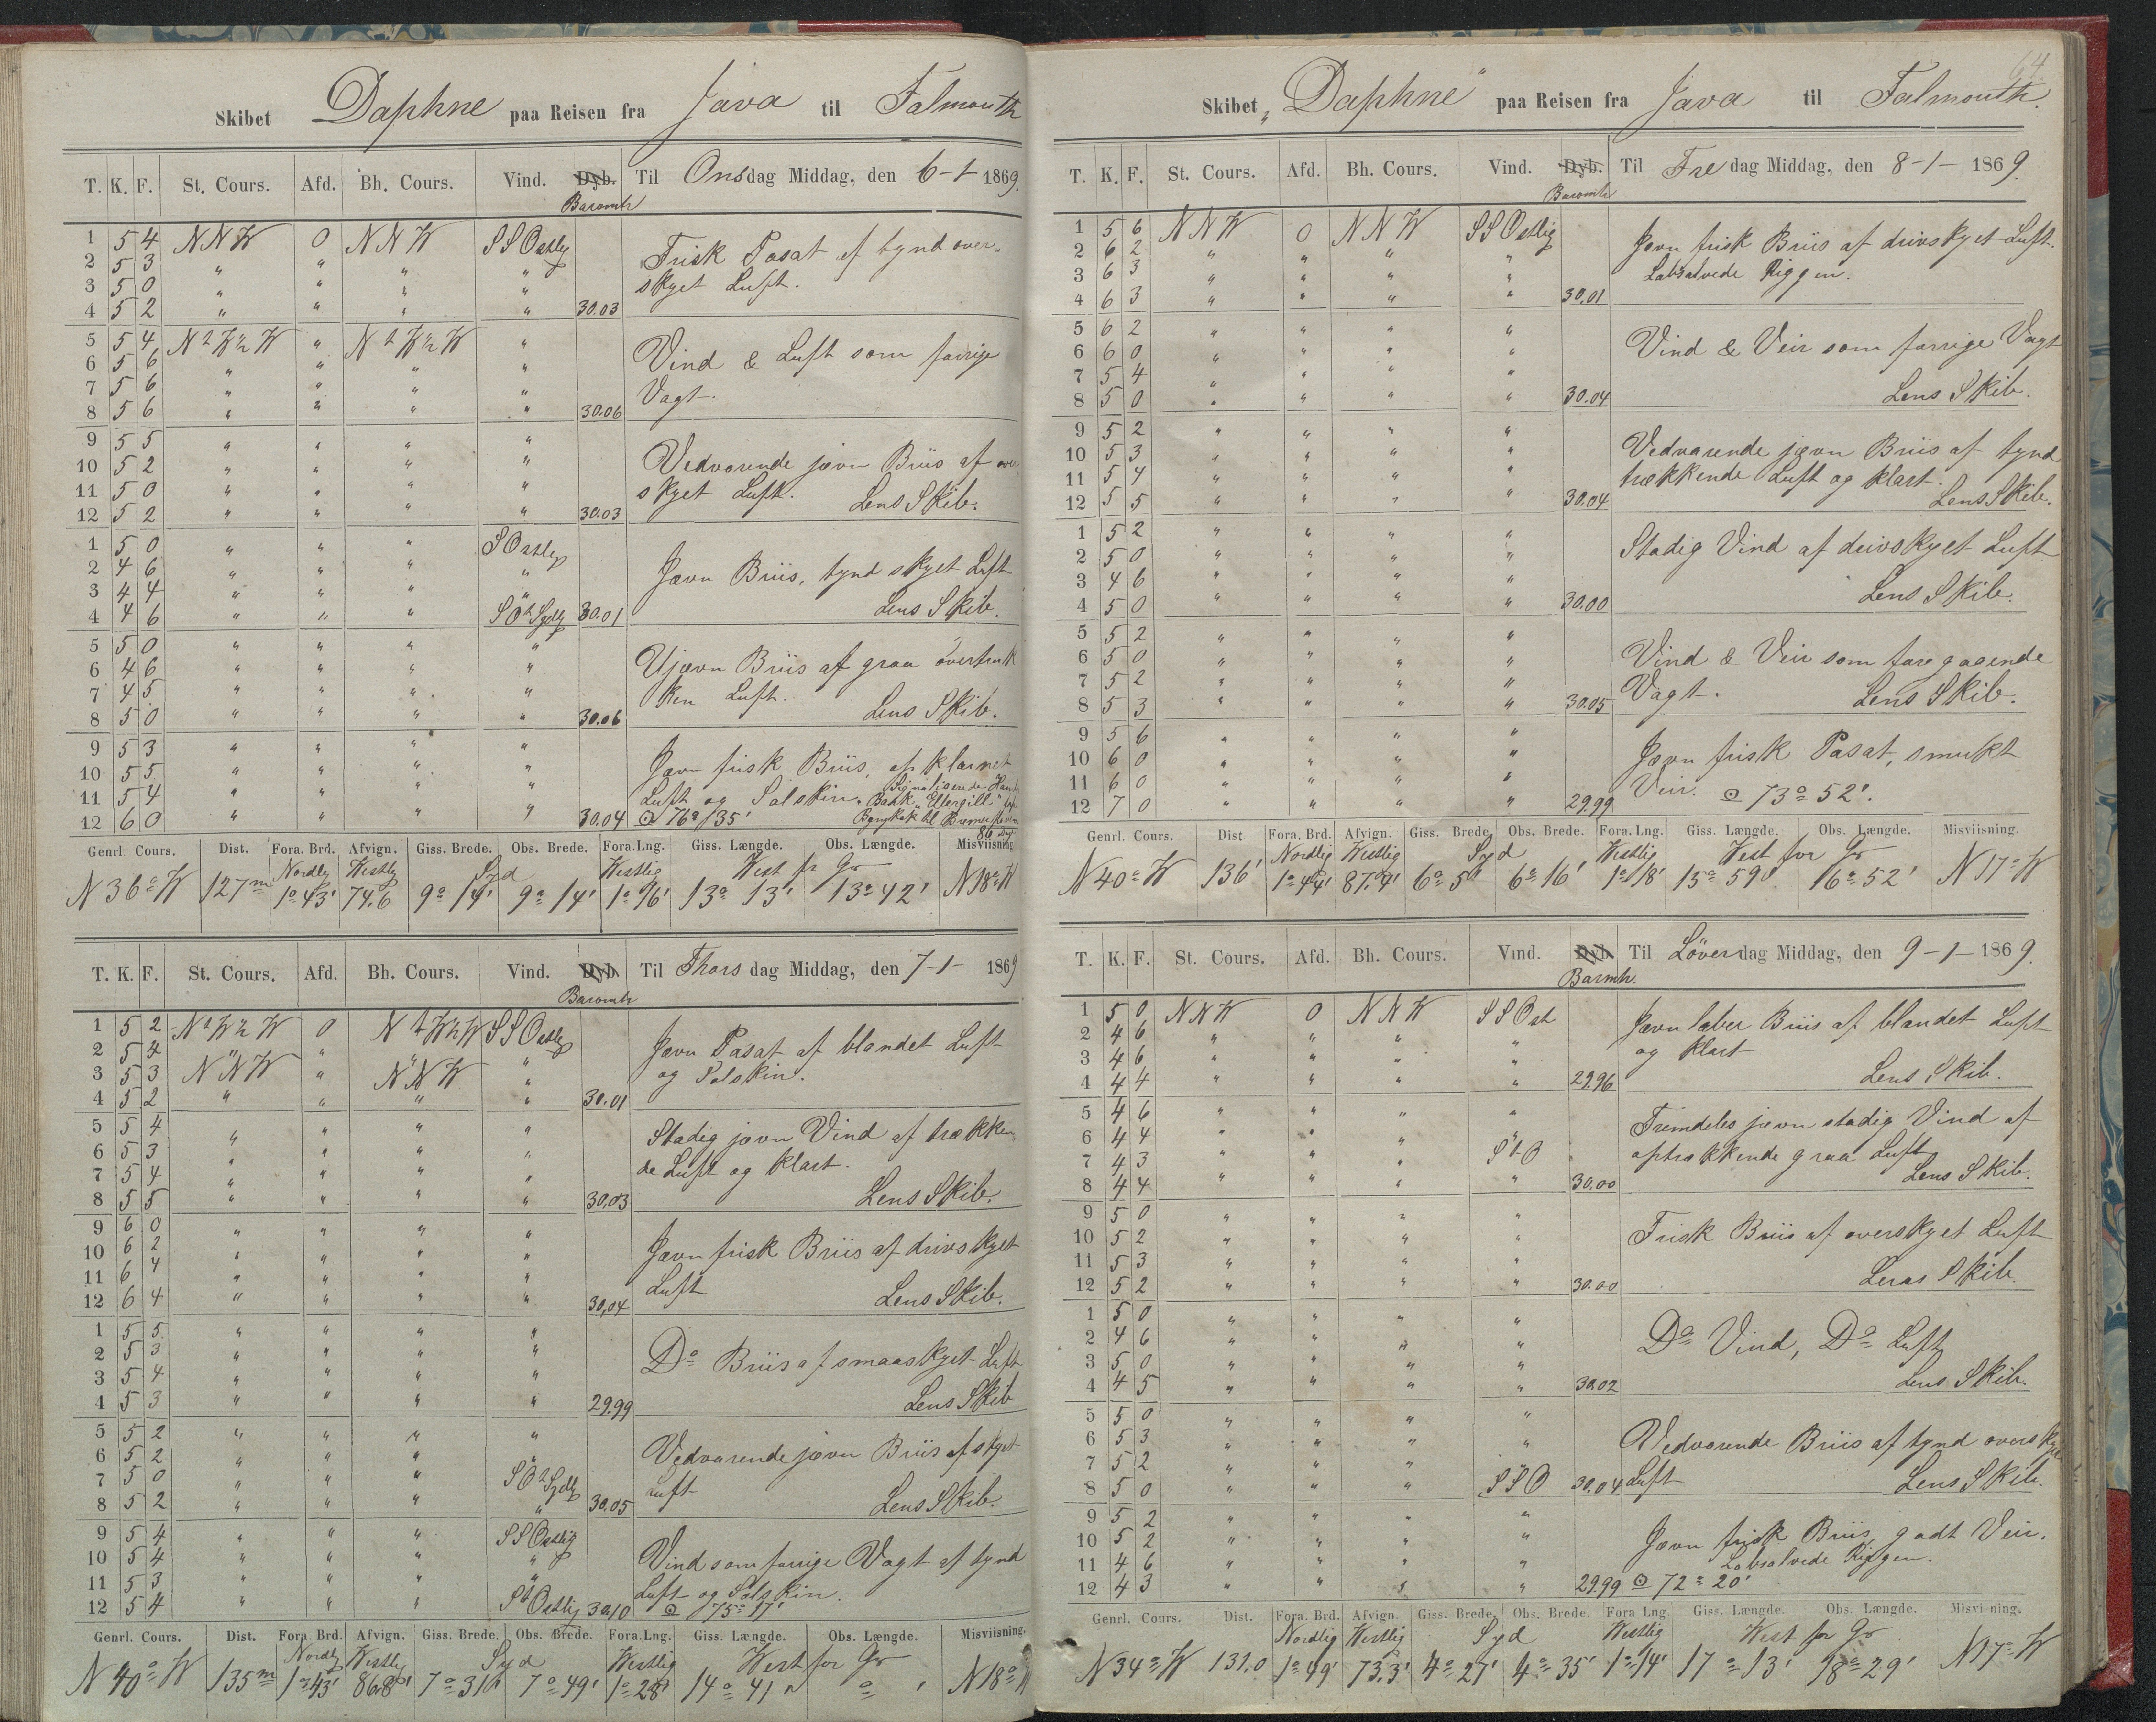 Skibet Daphne paa Reisen fra Java til Falmouth
T. K. F. St. Cours. Afd. Bh. Cours. Vind. Dyb. Baromtr Til Onsdag Middag, den 6-1- 1869.
1 5 4 NNW 0 NNW SSOstlig
2 5 3 " " " "
3 5 0 " " " "
4 5 2 " " " " 30.03
Frisk Pasat af tynd over-
skyet Luft.
5 5 4 NtW½W " NtW½W "
6 5 6 " " " "
7 5 6 " " " "
8 5 6 " " " " 30.06
Vind & Luft som forrige
Vagt.
9 5 5 " " " "
10 5 2 " " " "
11 5 0 " " " "
12 5 2 " " " " 30.03
Vedvarende jævn Briis af over
skyet Luft. Lens Skib.
1 5 0 " " " SOstlig
2 4 6 " " " "
3 4 4 " " " "
4 4 6 " " " SOtSydlig 30.01
Jævn Briis, tynd skyet Luft
Lens Skib.
5 5 0 " " " "
6 4 6 " " " "
7 4 5 " " " "
8 5 0 " " " " 30.06
Ujævn Briis af graa overtruk
ken Luft. Lens Skib.
9 5 3 " " " "
10 5 5 " " " "
11 5 4 " " " "
12 6 0 " " " " 30.04
Jævn frisk Briis, af klarnet
Luft og Solskin. Signaliserede
Bark "Ellergill"
76° 35' til Bremer
Genrl. Cours. Dist. Fora. Brd. Afvign. Giss. Brede. Obs. Brede. Fora. Lng. Giss. Længde. Obs. Længde. Misviisning
Nordlig Westlig Syd Westlig West for Gr
N 36° W 127m 1° 43' 74.6 9° 14' 9° 14' 1° 16' 13° 13' 13° 42' N 18° W
T. K. F. St. Cours. Afd. Bh. Cours. Vind. Dyb. Baromtr Til Thorsdag Middag, den 7-1- 1869
1 5 2 NtW½W 0 NtW½W SSOstlig
2 5 4 " " " "
3 5 3 NNW " NNW "
4 5 2 " " " " 30.01
Jævn Pasat af blandet Luft
og Solskin.
5 5 4 " " " "
6 5 3 " " " "
7 5 4 " " " "
8 5 5 " " " " 30.03
Stadig jævn Vind af trækken
de Luft og klart.
Lens Skib.
9 6 0 " " " "
10 6 2 " " " "
11 6 4 " " " "
12 6 4 " " " " 30,04
Jævn frisk Briis af drivskyet
Luft Lens Skib.
1 5 5 " " " "
2 5 3 " " " "
3 5 4 " " " "
4 5 3 " " " " 29.99
Do Briis af smaaskyet Luft
Lens Skib
5 5 2 " " " "
6 5 2 " " " "
7 5 0 " " " SOtSydlig
8 5 2 " " " " 30.05
Vedvarende jævn Briis af skyet
Luft Lens Skib.
9 5 4 " " " SSOstlig
10 5 4 " " " "
11 5 3 " " " "
12 5 4 " " " StOstlig 30.10
Vind som forrige Vagt af tynd
Luft og Solskin.
75° 17'
Genrl. Cours. Dist. Fora. Brd. Afvign. Giss. Brede. Obs. Brede. Fora. Lng. Giss. Længde. Obs. Længde. Misviisning.
Nordlig Westlig Syd Westlig West for Gr
N 40° W 135m 1° 43' 86.8' 7° 31' 7° 49' 1° 28' 14° 41' ° ' N 18° W
64.
Skibet "Daphne" paa Reisen fra Java til Falmouth.
T. K. F. St. Cours. Afd. Bh. Cours. Vind. Dyb. Baromtr Til Fredag Middag, den 8-1- 1869.
1 5 6 NNW 0 NNW SSOstlig
2 6 2 " " " "
3 6 3 " " " "
4 6 3 " " " " 30.01
Jævn frisk Briis af drivskyet Luft.
Labsalvede Riggen.
5 6 2 " " " "
6 6 0 " " " "
7 5 4 " " " "
8 5 0 " " " " 30.04
Vind & Veir som forrige Vagt
Lens Skib.
9 5 2 " " " "
10 5 3 " " " "
11 5 4 " " " "
12 5 5 " " " " 30.04
Vedvarende jævn Briis af tynd
trækkende Luft og klart.
Lens Skib.
1 5 2 " " " "
2 5 0 " " " "
3 4 6 " " " "
4 5 0 " " " " 30.00
Stadig Vind af drivskyet Luft
Lens Skib.
5 5 2 " " " "
6 5 0 " " " "
7 5 2 " " " "
8 5 3 " " " " 30.05
Vind & Veir som foregaaende
Vagt. Lens Skib.
9 5 6 " " " "
10 6 0 " " " "
11 6 0 " " " "
12 7 0 " " " " 29.99
Jævn frisk Pasat, smukt
Veir. 73° 52'.
Genrl. Cours. Dist Fora. Brd. Afvign. Giss. Brede Obs. Brede. Fora. Lng. Giss. Længde. Obs. Længde. Misviisning.
Nordlig Westlig Syd Westlig West for Gr
N 40° W 136' 1° 44' 87.4' 6° 5' 6° 16' 1° 18' 15° 59' 16° 52' N 17° W
T. K. F. St. Cours. Afd. Bh. Cours. Vind. Dyb. Barmtr. Til Löverdag Middag, den 9-1- 1869.
1 5 0 NNW 0 NNW SSOst
2 4 6 " " " "
3 4 6 " " " "
4 4 4 " " " " 29.96
Jævn laber Briis af blandet Luft
og klart
Lens Skib.
5 4 6 " " " "
6 4 4 " " " "
7 4 3 " " " StO
8 4 4 " " " " 30.00
Fremdeles jævn stadig Vind af
optrækkende graa Luft
Lens Skib.
9 5 0 " " " "
10 5 2 " " " "
11 5 3 " " " "
12 5 2 " " " " 30.00
Frisk Briis af overskyet Luft
Lens Skib
1 5 0 " " " "
2 4 6 " " " "
3 5 0 " " " "
4 4 5 " " " " 30.02
Do Vind, Do Luft
Lens Skib.
5 5 0 " " " "
6 5 3 " " " "
7 5 2 " " " "
8 5 0 " " " SSO 30.04
Vedvarende Briis af tynd overskyet
Luft Lens Skib.
9 5 2 " " " "
10 5 2 " " " "
11 4 6 " " " "
12 4 3 " " " " 29.99
Jævn frisk Briis, godt Veir.
Labsalvede Riggen.
72° 20'
Genrl. Cours. Dist. Fora. Brd. Afvign. Giss. Brede. Obs. Brede. Fora Lng. Giss. Længde. Obs. Længde. Misvisning.
Nordlig Westlig Syd Westlig West for Gr
N 34° W 131.0 1° 49' 73.3' 4° 27' 4° 35' 1° 14' 17° 13' 18° 29' N 17° W